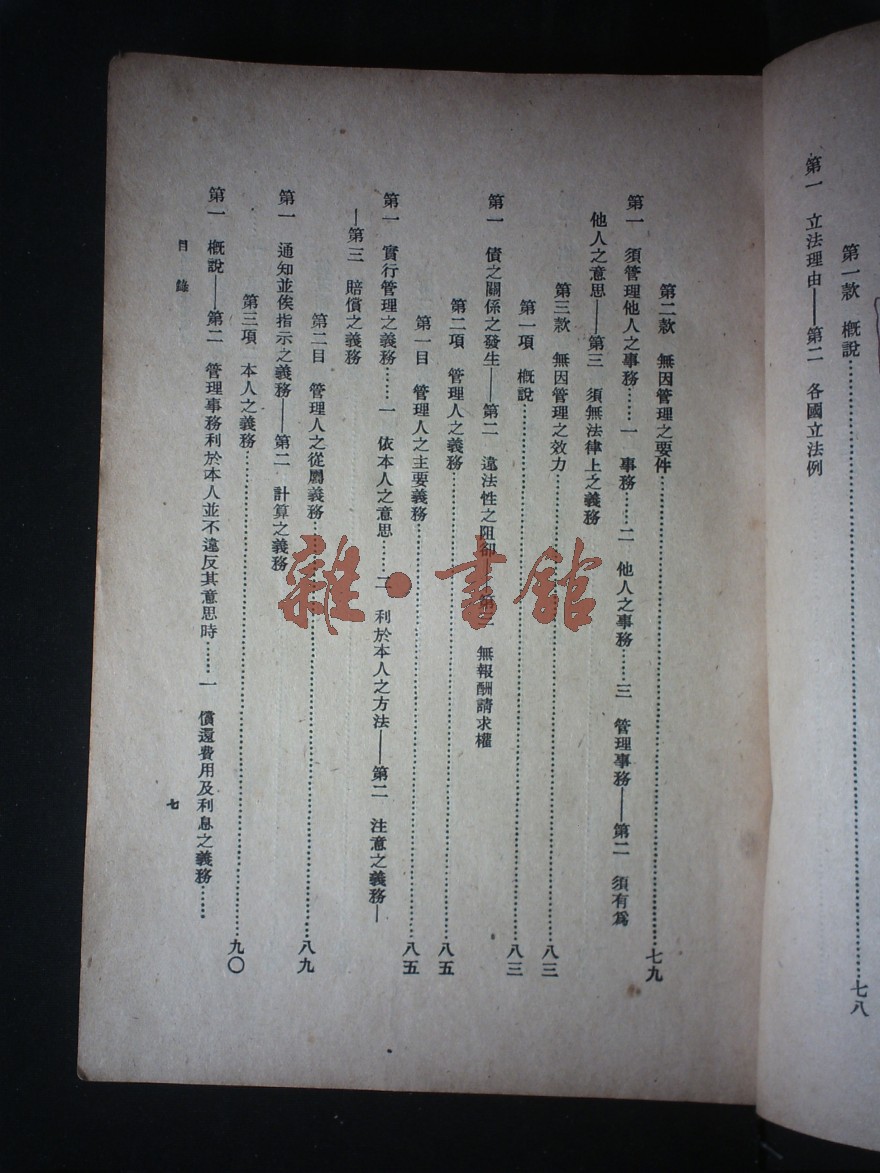 第一款　概說……七八
第一　立法理由——第二　各國立法例
第二款　無因管理之要件……七九
第一　須管理他人之事務……一　事務……二　他人之事務……三　管理事務——第二　須有爲
他人之意思——第三　須無法律上之義務
第三款　無因管理之效力……八三
第一項　概說……八三
第一　債之關係之發生——第二　違法性之阻卻——第三　無報酬請求權
第二項　管理人之義務……八五
第一目　管理人之主要義務……八五
第一　實行管理之義務……一　依本人之意思……二　利於本人之方法——第二　注意之義務—
—第三　賠償之義務
第二目　管理人之從屬義務……八九
第一　通知並俟指示之義務——第二　計算之義務
第三項　本人之義務……九〇
第一　概說——第二　管理事務利於本人並不違反其意思時……一　償還費用及利息之義務……
目錄
七
雜·書館